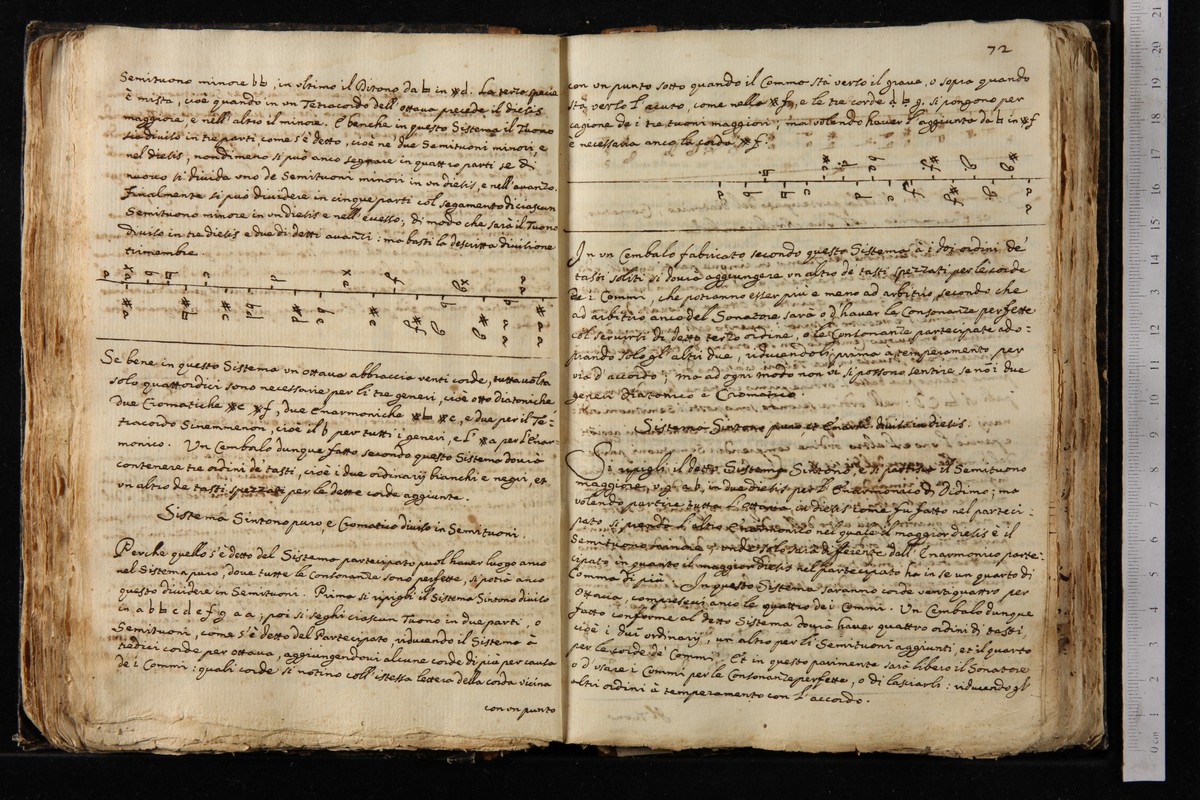 Semituono minore b♮, in ultimo il Ditono da ♮ in ※d. La terza specie
è mista, cioè quando in un Tetracordo dell'ottava precede il diesis
maggiore, e nell'altro il minore. E benche in questo Sistema il Tuono
sia diviso in tre parti, come s'è detto, cioè ne' due Semituoni minori, e
nel diesis, nondimeno si può anco segnare in quattro parti se di
nuovo si divida uno de Semituoni minori in un diesis, e nell'avanzo.
Finalmente si può dividere in cinque parti col segamento di ciascun
Semituono minore in un diesis e nell'
di modo che sarà il Tuono
diviso in tre diesis e due di detti avanzi: ma basti la descritta divisione
trimembre.
Se bene in questo Sistema un ottava abbraccia venti corde, tuttavolta
solo quattordici sono necessarie per li tre generi, cioè otto diatoniche
due Cromatiche ※c ※f, due Enarmoniche ※♮ ※e, e due per il Te-
tracordo Sinemmenon, cioè il b per tutti i generi, e l' ※a per l'Enar-
monico. Un Cembalo dunque fatto secondo questo Sistema dovrà
contenere tre ordini de tasti, cioè i due ordinarij bianchi e negri, et
un altro de tasti spezzati per le dette corde aggiunte.
Sistema Sintono puro e Cromatico diviso in Semituoni.
Perche quello s'è detto del Sistema partecipato puol haver luogo anco
nel Sistema puro, dove tutte le Consonanze sono perfette, si potrà anco
questo dividere in Semituoni. Prima si ripigli il Sistema Sintono diviso
in a b ♮ c d e f g a a; poi si seghi ciascun Tuono in due parti, o
Semituoni, come s'è detto del Partecipato, riducendo il Sistema à
tredici corde per ottava, aggiungendovi alcune corde di più per causa
de i Commi: quali corde si notino coll'istessa lettera della corda vicina
con un punto
72
con un punto sotto quando il Comma stà verso il grave, o sopra quando
stà verso l'acuto, come nella ※f, e le tre corde d ♮ g, si pongono per
cagione de i tre tuoni maggiori; ma volendo haver l'aggiunta da ♮ in ※f
è necessaria anco la corda ※f.
In un Cembalo fabricato secondo questo Sistema à i doi ordini de'
tasti soliti si dovrà aggiungere un altro de tasti spezzati per le corde
de i Commi, che potranno esser più e meno ad arbitrio, secondo che
ad arbitrio anco del Sonatore sarà o d'haver le Consonanze perfette
col servirsi di detto terzo ordine, o le Consonanze partecipate ado-
prando solo gl'altri due, riducendoli prima a temperamento per
via d'accordo; ma ad ogni modo non vi si possono sentire se no i due
generi Diatonico e Cromatico.
Sistema Sintono puro, et Enarm. diviso in diesis.
Si ripigli il detto Sistema Sintono e si partisca il Semituono
maggiore, v.g. a b, in due diesis per l'Enarmonico di Didimo; ma
volendo partire tutta l'ottava in diesis come fu fatto nel parteci-
pato si prenda l'altro Enarmonico nel quale il maggior diesis è il
Semituono minore; onde solo sarà differente dall'Enarmonico parte-
cipato in quanto il maggior diesis nel partecipato ha in se un quarto di
Comma di più. In questo Sistema saranno corde ventiquattro per
Ottava, compresevi anco le quattro de i Commi. Un Cembalo dunque
fatto conforme al detto Sistema dovrà haver quattro ordini di tasti,
cioè i dui ordinarij, un altro per li Semituoni aggiunti, et il quarto
per le corde de' Commi. Et in questo parimente sarà libero il Sonatore
o d'usare i Commi per le Consonanze perfette, o di lasciarli: riducendo gl'
altri ordini à temperamento con l'accordo.